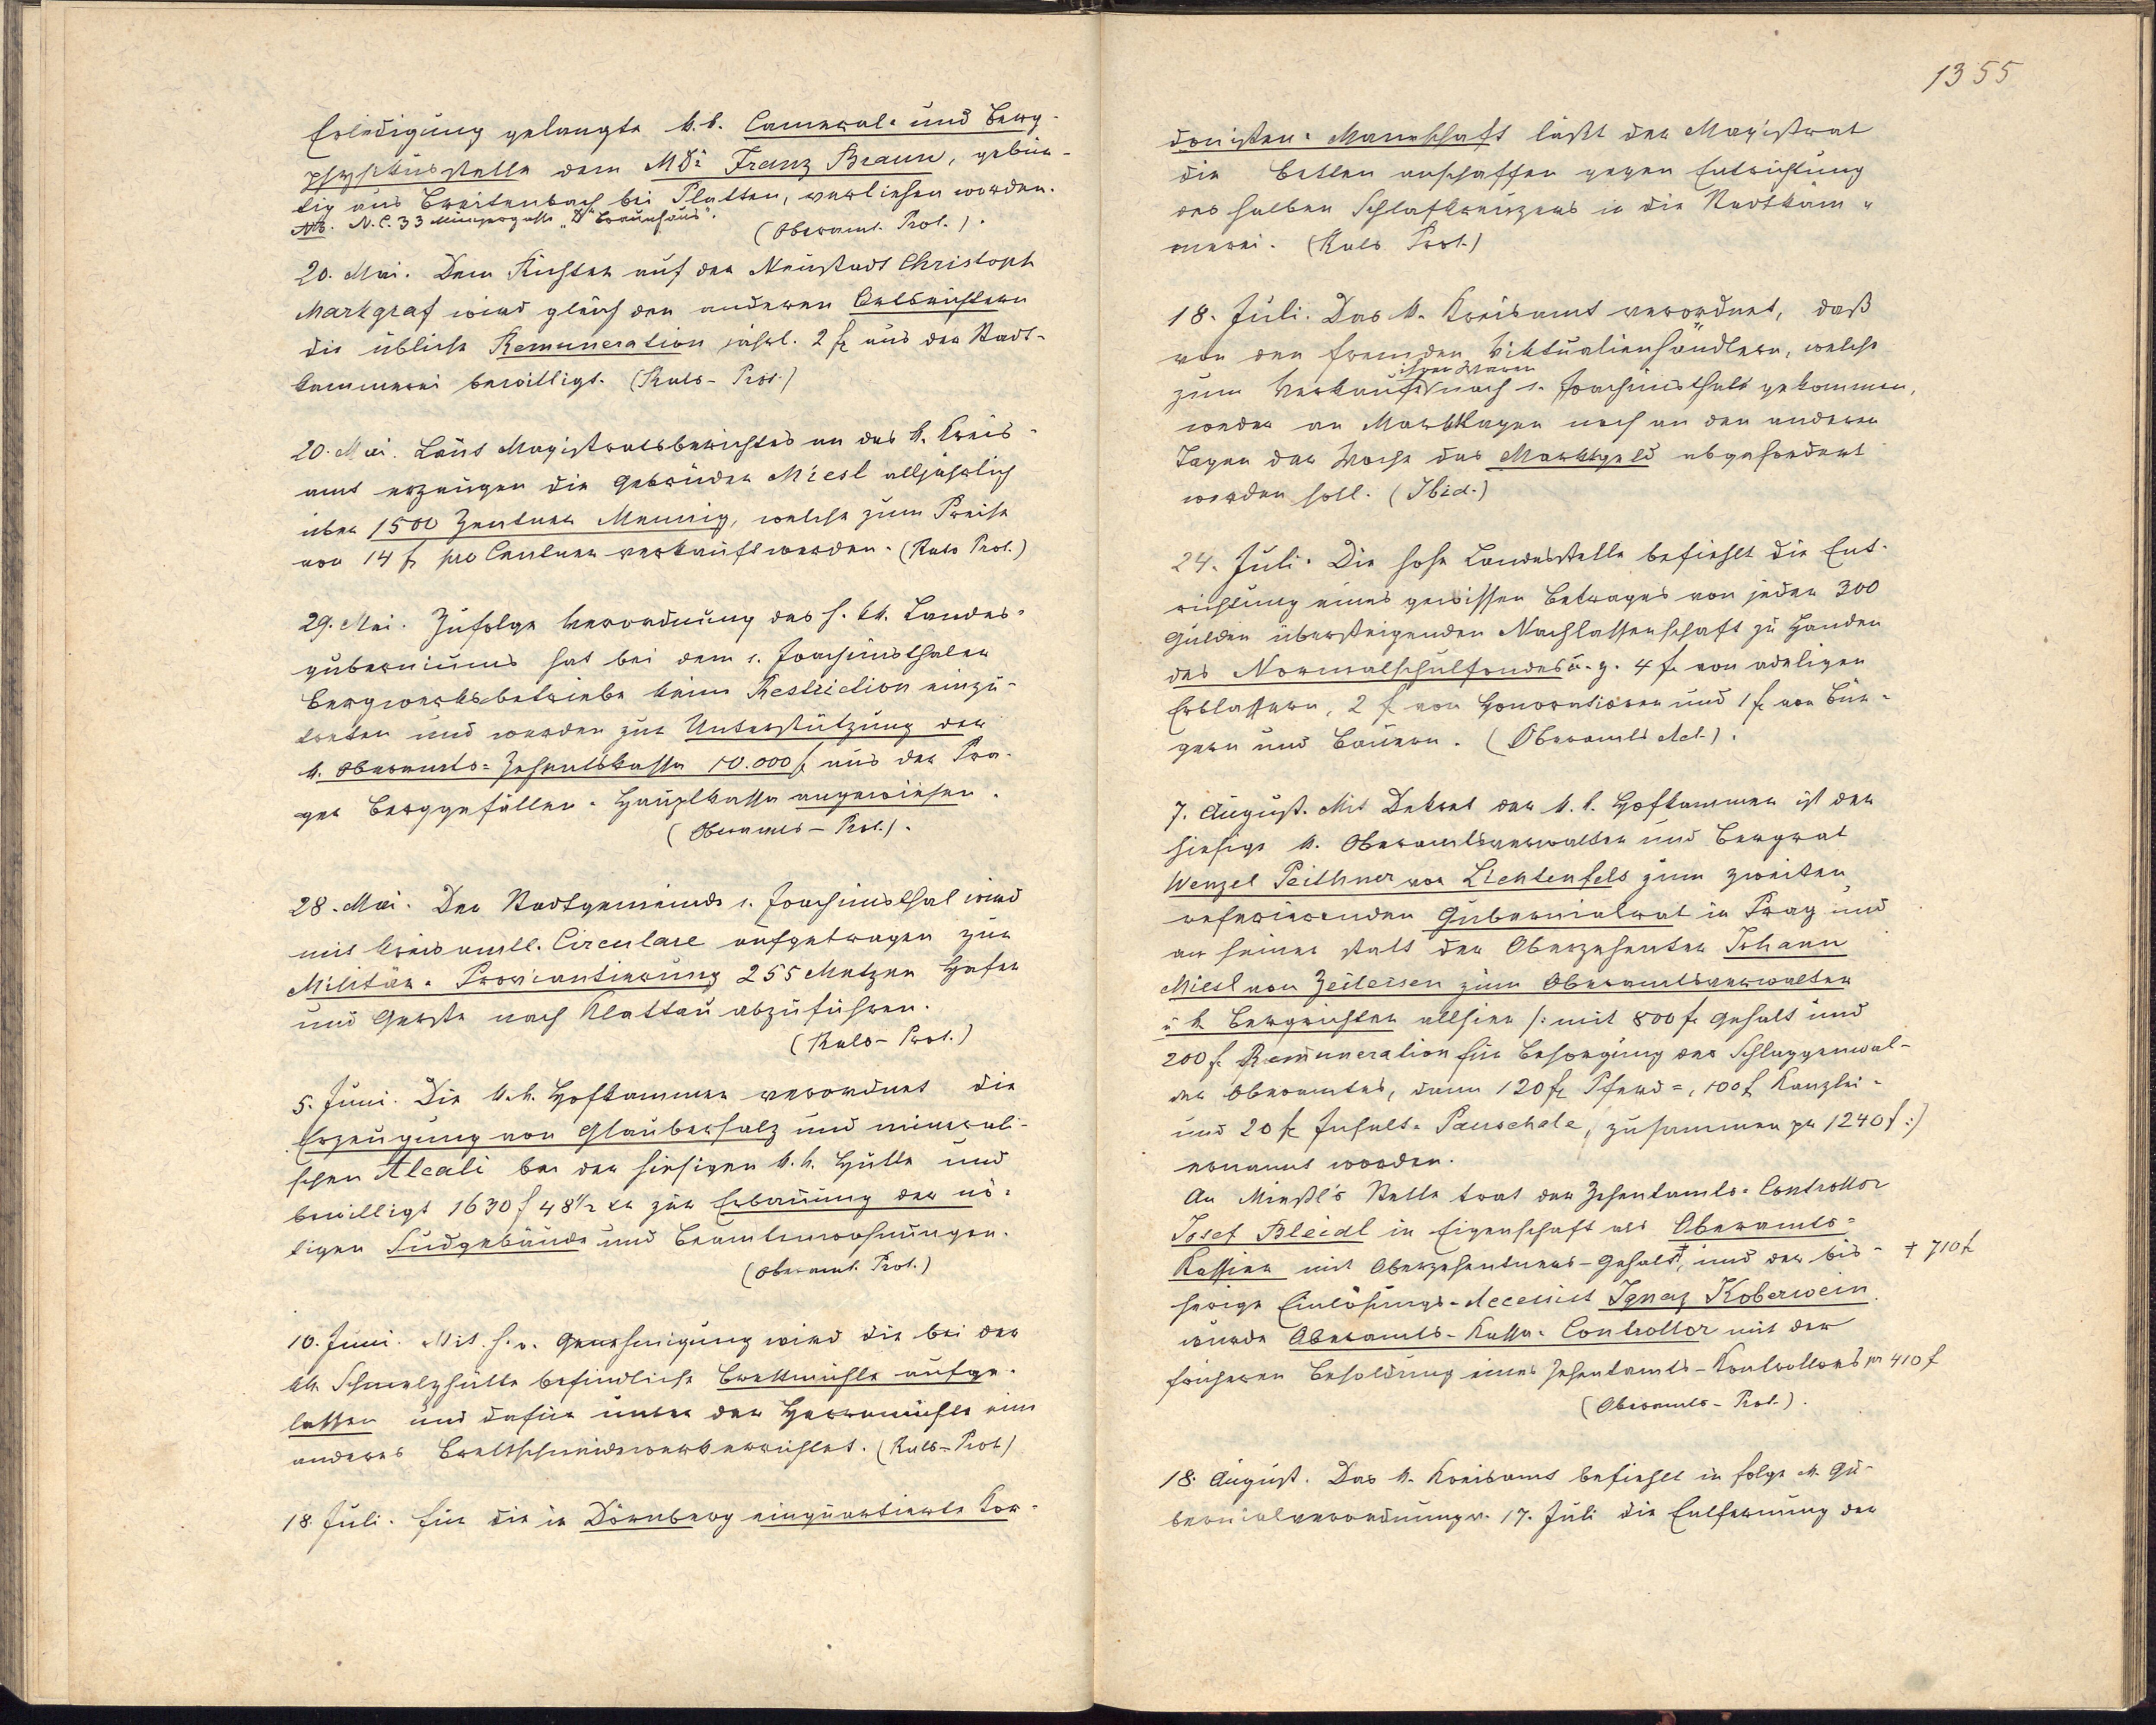 Erledigung gelangte k.k. Cameral- und Berg-
physikusstelle dem MDr Franz Braun, gebür-
tig aus Breitenbach bei Platten, verliehen worden.
NB. N.C. 33 Münzergasse „D Braunhaus".
(Oberamt. Prot.).
20. Mai. Dem Richter auf der Neustadt Christoph
Markgraf wird gleich den anderen Ortsrichtern
die übliche Remuneration jährl. 2 f aus der Stadt-
kammerei bewilligt. (Rats-Prot.)
20. Mai. Laut Magistratsberichtes an das k. Kreis-
amt erzeugen die Gebrüder Miesl alljährlich
über 1500 Zentner Mennig, welche zum Preise
von 14 f pro Centner verkauft werden. (Rats Prot.)
29. Mai. Zufolge Verordnung des h. kk. Landes-
guberniums hat bei dem s. Joachimsthaler
Bergwerksbetriebe keine Restriction einzu-
treten und werden zur Unterstützung der
k. Oberamts-Zehentskassa 10.000 f aus der Pra-
ger Berggefällen-Hauptkassa angewiesen.
(Oberamts-Prot.).
28. Mai. Der Stadtgemeinde s. Joachimsthal wird
mit kreisamtl. Circulare aufgetragen zur
Militär-Proviantierung 255 Metzen Hafer
und Gerste nach Klattau abzuführen.
(Rats-Prot.)
5. Juni. Die k.k. Hofkammer verordnet die
Erzeugung von Glaubersalz und minerali-
schen Alcali bei der hiesigen k.k. Hütte und
bewilligt 1630 f 48½ kr zur Erbauung der nö-
tigen Sudgebäude und Beamtenwohnungen.
(Oberamt. Prot.)
10. Juni. Mit h. o. Genehmigung wird die bei der
kk Schmelzhütte befindliche Brettmühle aufge-
lassen und dafür unter der Herrnmühle ein
anderes Brettschneidewerk errichtet. (Rats-Prot)
18. Juli. Für die in Dörnberg einquartierte Kor-
1355
donisten-Mannschaft läßt der Magistrat
die Betten anschaffen gegen Entrichtung
des halben Schlafkreuzers in die Stadtkäm-
merei. (Rats Prot.)
18. Juli. Das k. Kreisamt verordnet, daß
von den fremden Viktualienhändlern, welche
ihrer Waren
zum Verkaufe nach s. Joachimsthal gekommen,
weder an Markttagen noch an den anderen
Tagen der Woche das Marktgeld abgefordert
werden soll. (Ibid.)
24. Juli. Die hohe Landesstelle befiehlt die Ent-
richtung eines gewissen Betrages von jeder 300
Gulden übersteigenden Nachlassenschaft zu Handen
des Normalschulfondes u. z. 4 f. von adeligen
Erblassern, 2 f von Honoratioren und 1 f von Bür-
gern und Bauern. (Oberamts Act.).
7. August. Mit Dekret der k.k. Hofkammer ist der
hiesige k. Oberamtsverwalter und Bergrat
Wenzel Peithner von Lichtenfels zum zweiten
referierenden Gubernialrat in Prag und
an seiner statt der Oberzehenter Johann
Miesl von Zeileisen zum Oberamtsverwalter
u k Bergrichter allhier /: mit 800 f. Gehalt und
200 f. Remuneration für Besorgung des Schlaggenwal-
der Oberamtes, dann 120 f Pferd-, 100 f Kanzlei-
und 20 f Inselt-Pauschale, zusammen pr 1240 f :/
ernannt worden.
An Mießl's Stelle trat der Zehentamts-Controllor
Josef Bleidl in Eigenschaft als Oberamts-
Kassier mit Oberzehentners-Gehalt†, und der bis-
† 710 f
herige Einlösungs-Accessist Ignaz Koberwein
wurde Oberamts-Kassa-Controllor mit der
früheren Besoldung eines Zehentamts-Kontrollors pr 410 f
(Oberamts-Prot.).
18. August. Das k. Kreisamt befiehlt in folge k. Gu-
bernialverordnung v. 17. Juli die Entfernung der